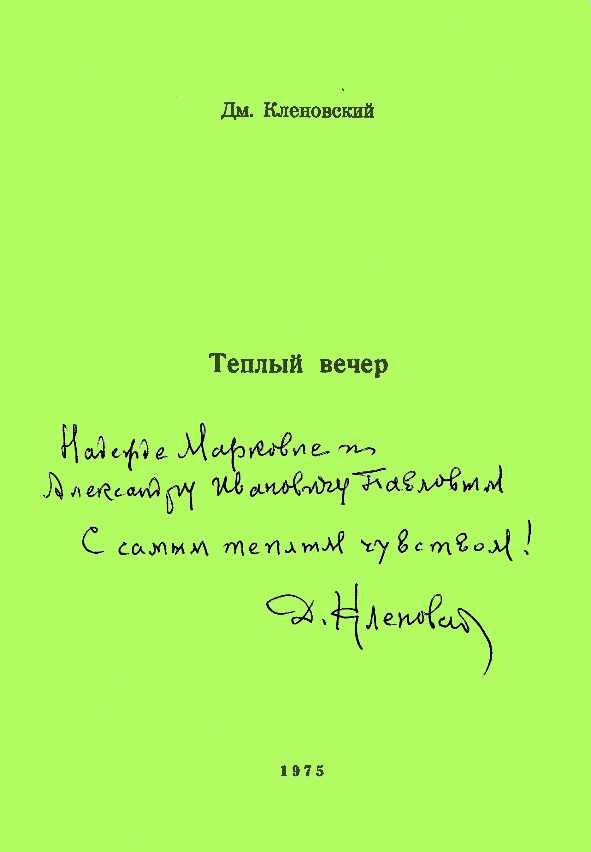 Дм. Кленовский
Теплый вечер
Надежде Марковне и
Александру Ивановичу Павловым
С самым теплым чувством!
Д. Кленовский
1975